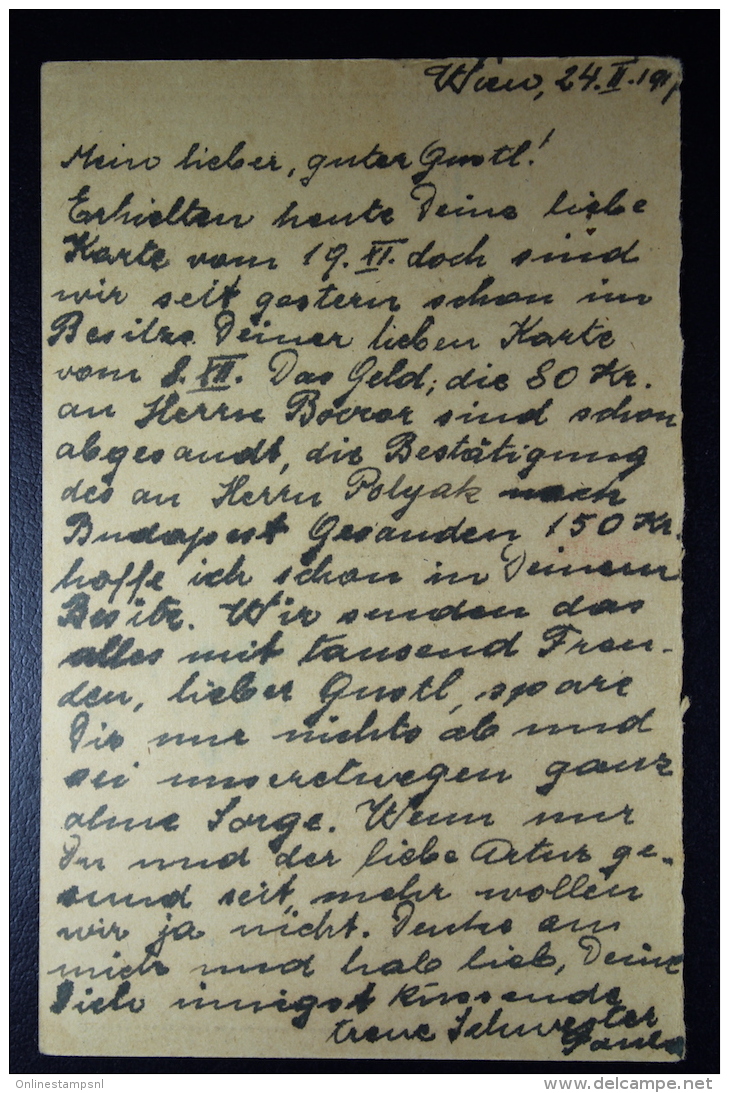 Wien, 24. II. 191
Mein lieber, guter Gustl!
Erhielten heute Deine liebe
Karte vom 19. XI. doch sind
wir seit gestern schon im
Besitze Deiner lieben Karte
vom 8. XII. Das Geld, die 80 Kr.
an Herrn sind schon
abgesandt, die Bestätigung
des an Herrn Polyak nach
Budapest Gesanden 150 Kr.
hoffe ich schon in Deinem
Besitz. Wir senden das
alles mit tausend Freu-
den, lieber Gustl, spare
Dir nur nichts ab und
sei unseretwegen ganz
ohne Sorge. Wenn nur
Du und der liebe Artur ge-
sund seit, mehr wollen
wir ja nicht. Denke an
mich und hab lieb, Deine
Dich innigst küssende
treue Schwester
Paula
Onlinestampsnl
www.delcampe.net